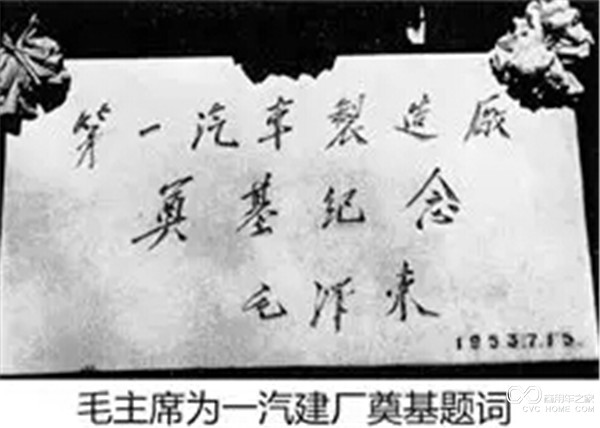 第一汽车製造厰
奠基纪念
毛泽东
1953.7.15.
毛主席为一汽建厂奠基题词
商用车之家
CVC HOME · COM